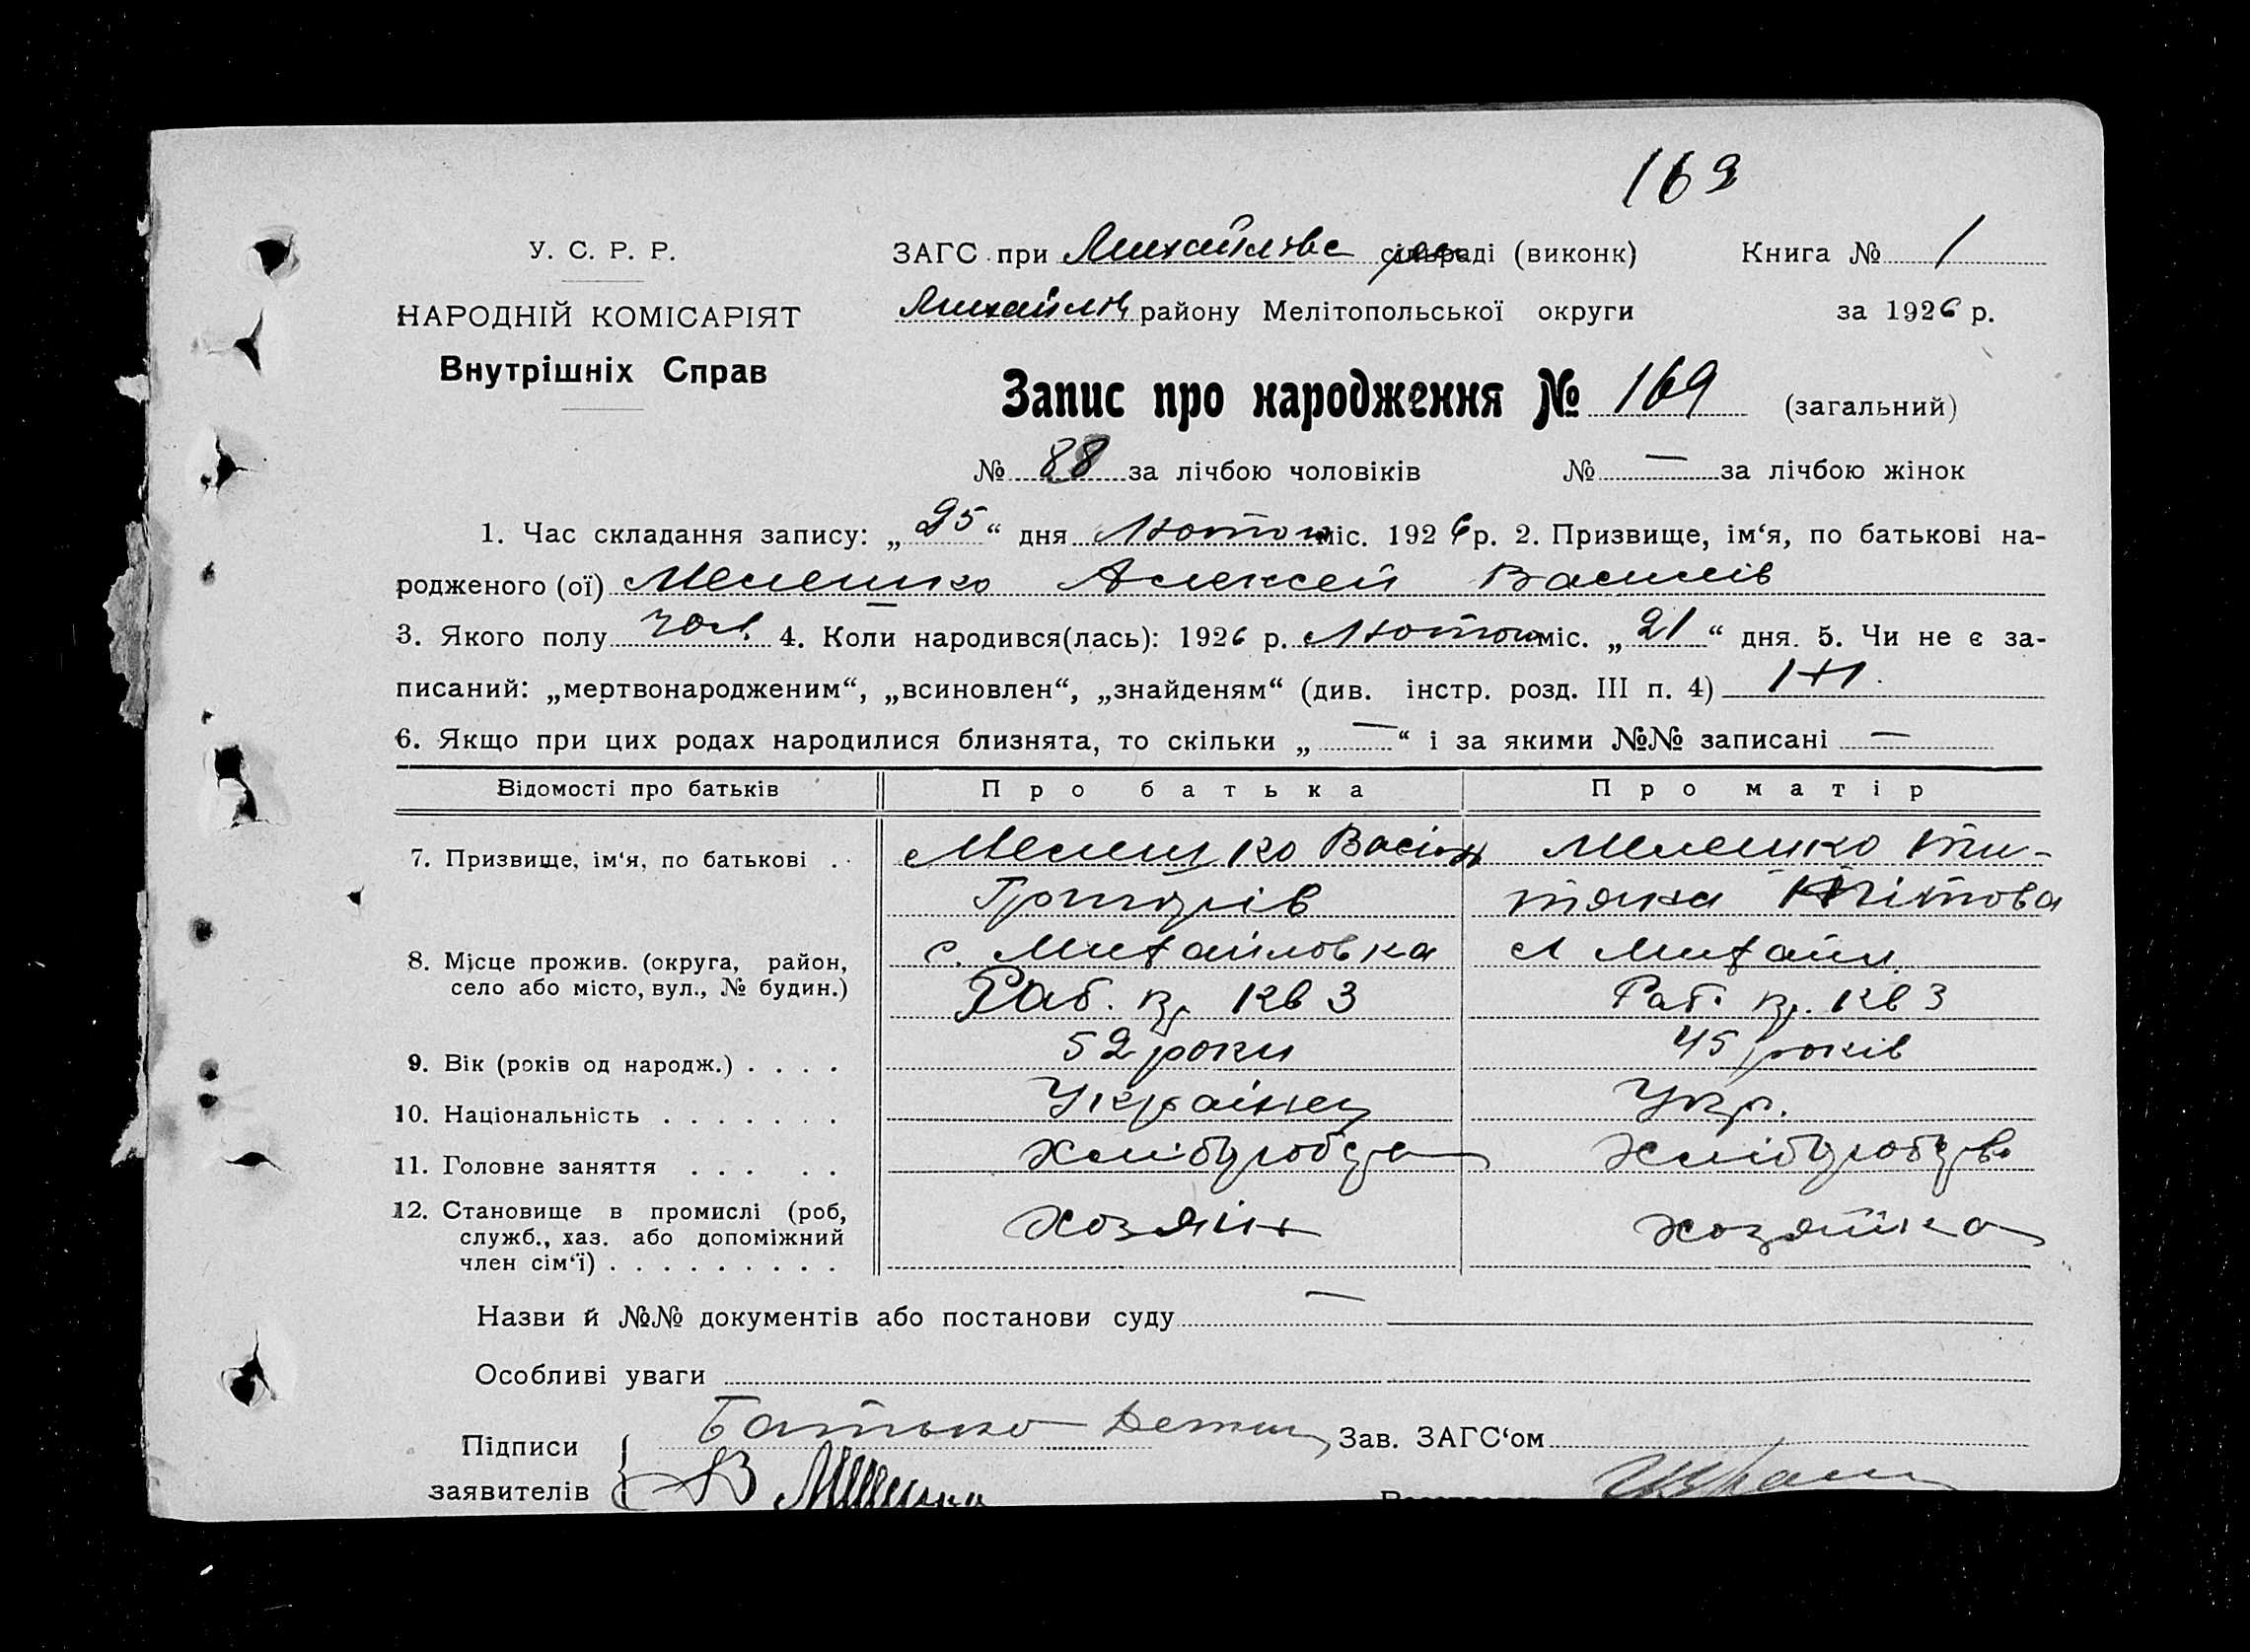 163
У. С. Р. Р.
ЗАГС при Михайлівс сільраді (виконк) Книга № 1
НАРОДНІЙ КОМІСАРІЯТ
Михайлів району Мелітопольської округи за 1926 р.
Внутрішніх Справ
Запис про народження № 169 (загальний)
№ 88 за лічбою чоловіків № — за лічбою жінок
1. Час складання запису: „25“ дня Лютого міс. 1926 р. 2. Призвище, ім‘я, по батькові на-
родженого (ої) Мелешко Алексей Василів
3. Якого полу чол. 4. Коли народився(лась): 1926 р. Лютого міс. „21“ дня. 5. Чи не є за-
писаний: „мертвонародженим“, „всиновлен“, „знайденям“ (див. інстр. розд. III п. 4) Ні
6. Якщо при цих родах народилися близнята, то скільки „—“ і за якими №№ записані —
Відомості про батьків Про батька Про матір
7. Призвище, ім‘я, по батькові . . Мелешко Васіль Мелешко
Григорів Тітова
8. Місце прожив. (округа, район, с. Михайловка с Михайл.
село або місто, вул., № будин.) Раб. кр. кв 3 Раб. кр. кв 3
9. Вік (років од народж.) . . . . 52 роки 45 років
10. Національність . . . . . . . Українец Укр.
11. Головне заняття . . . . . Хліборобство Хліборобств
12. Становище в промислі (роб, Хозяін хозяйка
служб., хаз. або допоміжний
член сім‘ї) . . . . . . . . .
Назви й №№ документів або постанови суду —
Особливі уваги
Підписи Батько Зав. ЗАГС‘ом
заявителів В Мелешко